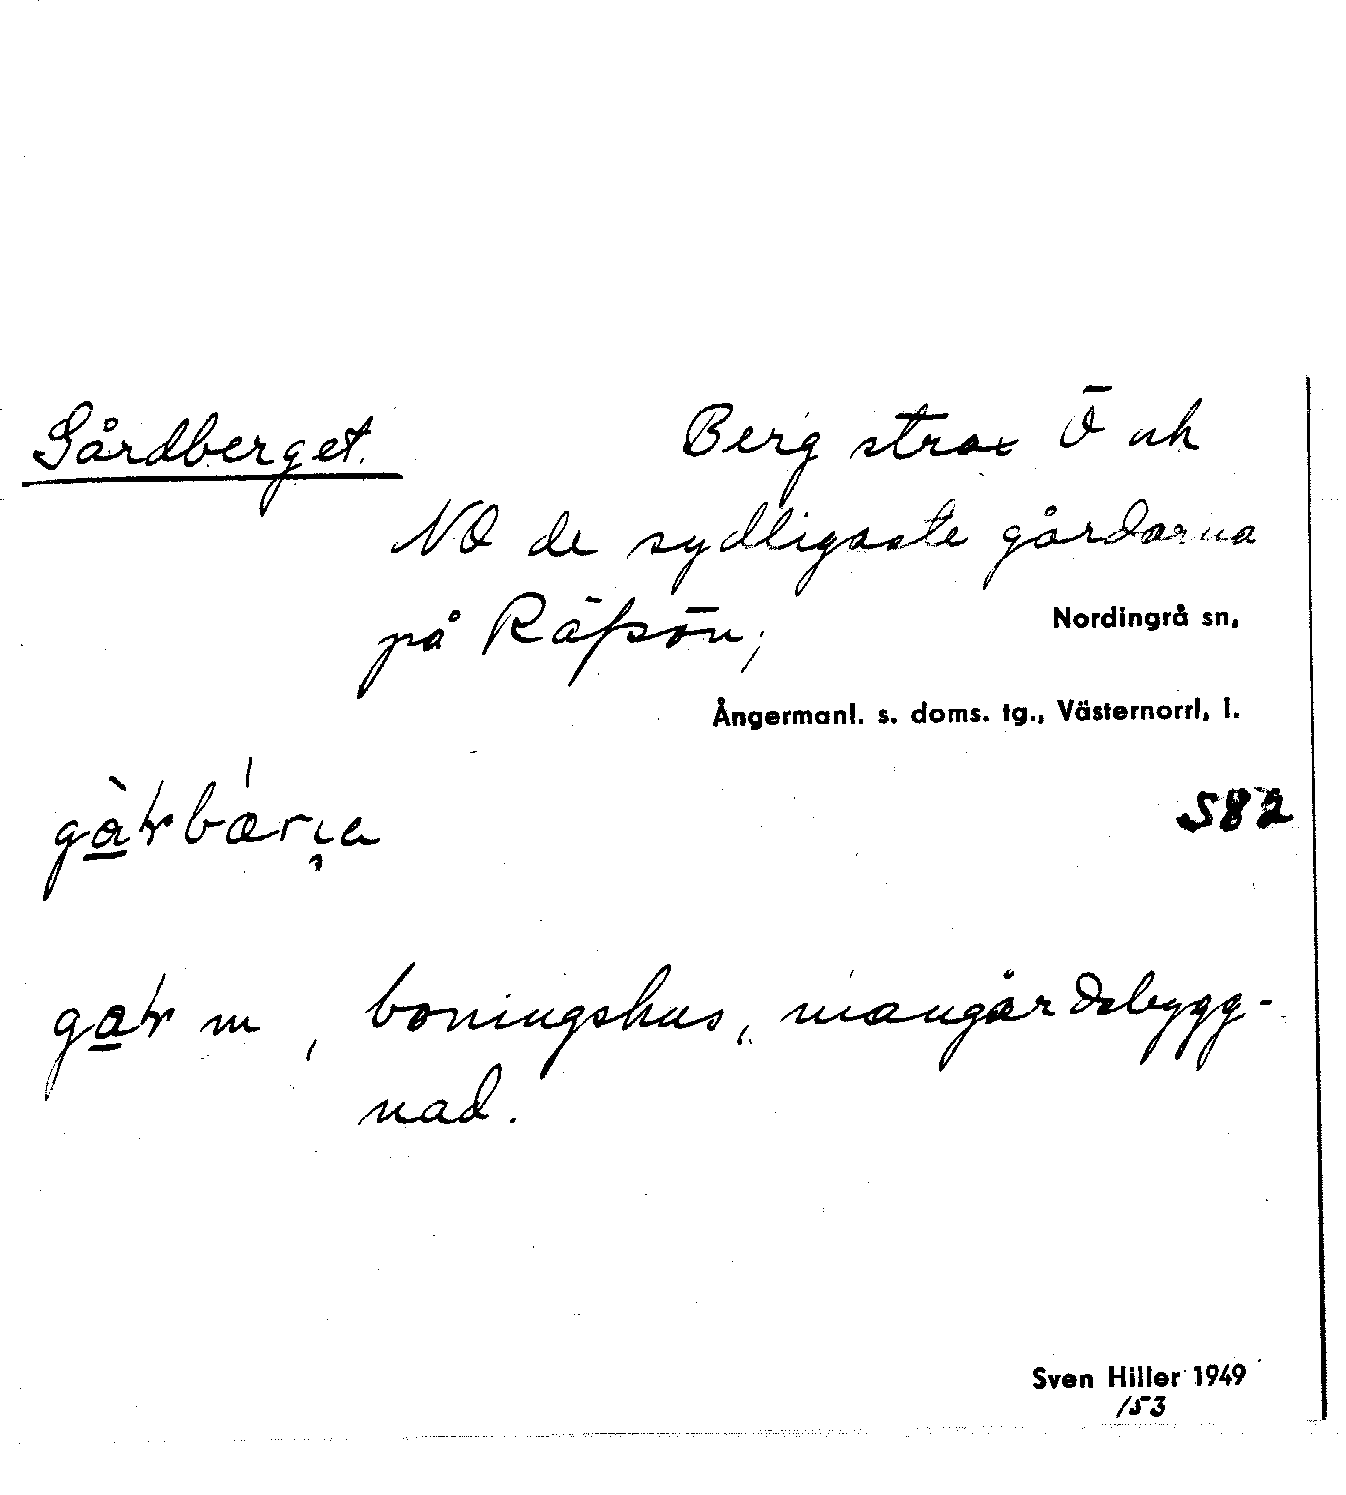 Gårdberget.
Berg strax Ö och
NO de sydligaste gårdarna
på Räfsön,
Nordingrå sn,
Ångermanl. s. doms. tg., Västernorrl, l.
582
m, boningshus, mangårdsbygg-
nad.
Sven Hiller 1949
153